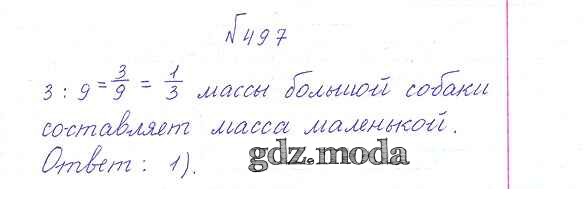 №497
3 : 9 = 3/9 = 1/3 массы большой собаки
составляет масса маленькой.
Ответ: 1).
gdz.moda